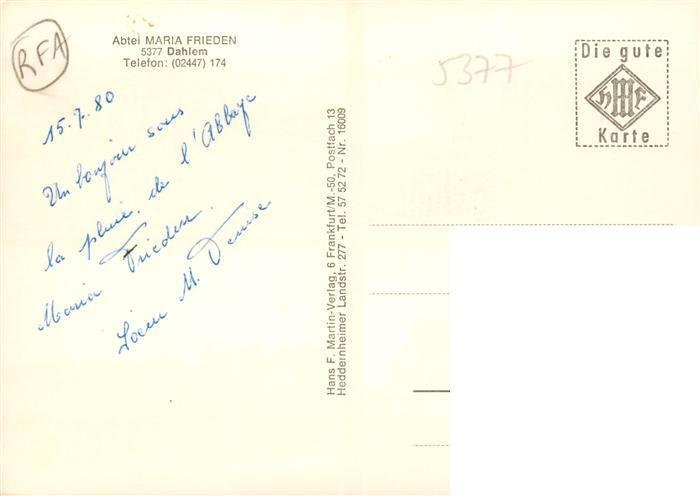 RFA
Abtei MARIA FRIEDEN
5377 Dahlem
Telefon: (02447) 174
15.7.80
Un bonjour sous
la pluie de l'Abbaye
Maria Frieden.
M. Denise
Hans F. Martin-Verlag, 6 Frankfurt/M.-50, Postfach 13
Heddernheimer Landstr. 277 - Tel. 57 52 72 - Nr. 16009
5377
Die gute
HMF
Karte